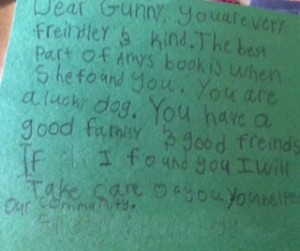 Dear Gunny, You are very
freindley & kind. The best
Part of Amys book is when
She found you. You are
a lucky dog. You have a
good family & good freinds
If I found you I will
Take care of you You help
Our community.